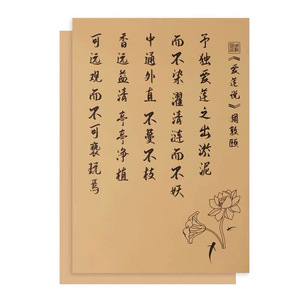 《爱莲说》周敦颐
予独爱莲之出淤泥
而不染濯清涟而不妖
中通外直不蔓不枝
香远益清亭亭净植
可远观而不可亵玩焉